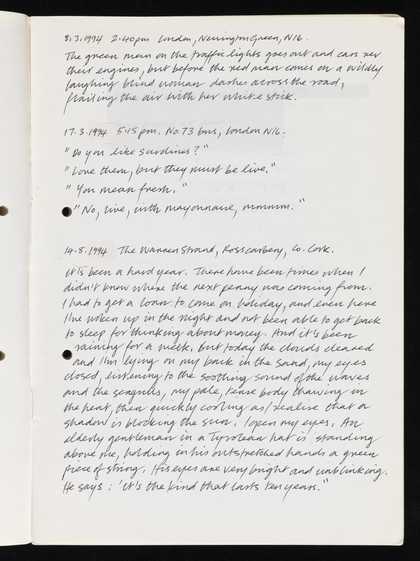 8.3.1994 2.40pm London, Newington Green, N16.
The green man on the traffic lights goes out and cars rev
their engines, but before the red man comes on a wildly
laughing blind woman dashes across the road,
flailing the air with her white stick.
17.3.1994 5.15 pm. No. 73 bus, London N16.
"Do you like sardines?"
"Love them, but they must be live."
"You mean fresh."
"No, live, with mayonnaise, mmmm."
14.8.1994 The Warren Strand, Rosscarbery, Co. Cork.
It's been a hard year. There have been times when I
didn't know where the next penny was coming from.
I had to get a loan to come on holiday, and even here
I've woken up in the night and not been able to get back
to sleep for thinking about money. And it's been
raining for a week, but today the clouds cleared
and I'm lying on my back in the sand, my eyes
closed, listening to the soothing sound of the waves
and the seagulls, my pale, tense body thawing in
the heat, then quickly cooling as I realise that a
shadow is blocking the sun. I open my eyes. An
elderly gentleman in a Tyrolean hat is standing
above me, holding in his outstretched hands a green
piece of string. His eyes are very bright and unblinking.
He says: 'It's the kind that lasts ten years."